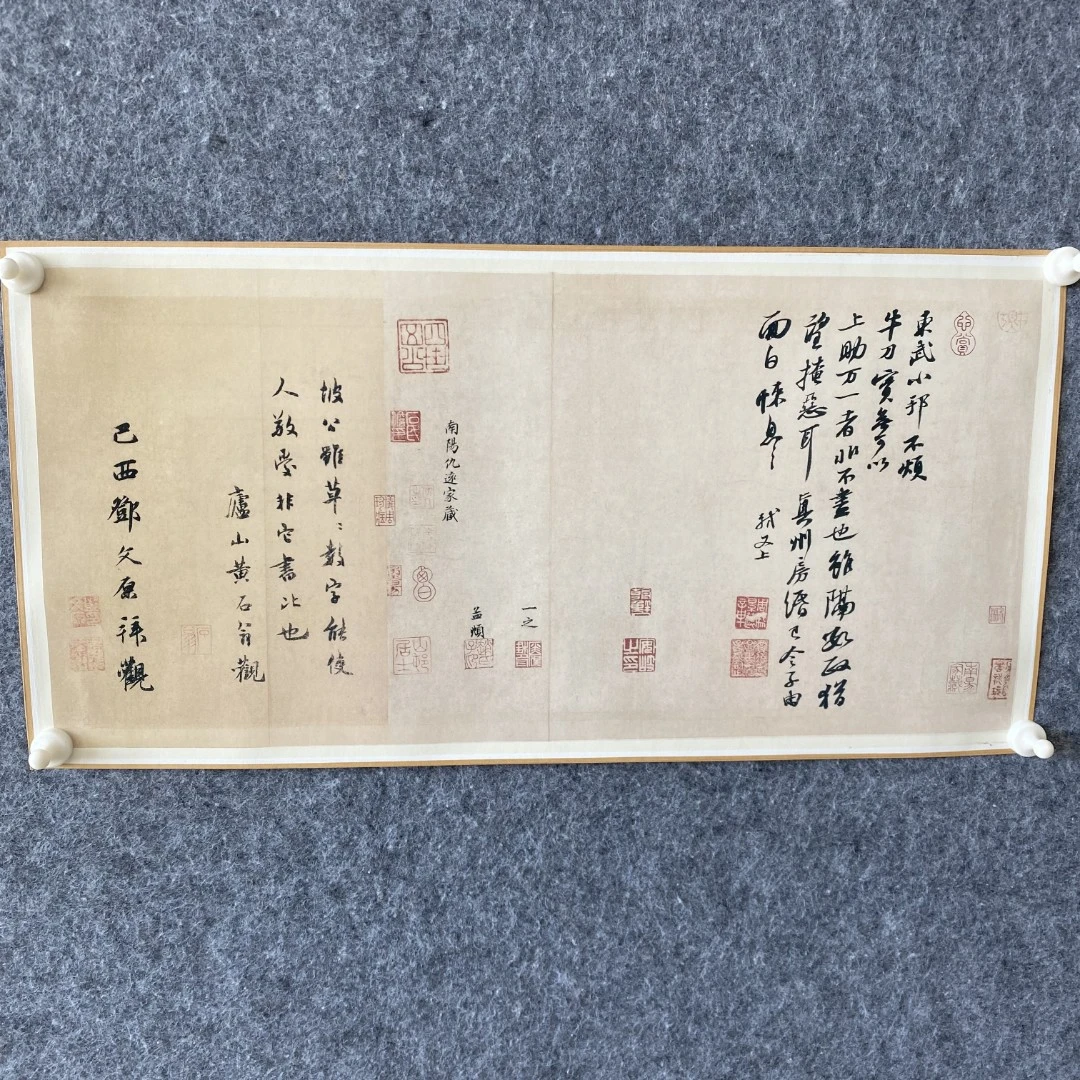 東武小邦不煩
牛刀實無可以
上助万一者非不盡也雖隔數政猶
望掩惡耳真州房緡已令子由
面白悚息
軾又上
一之
孟頫
南陽仇遠家藏
坡公雖草〻數字能使
人敬愛非它書比也
廬山黃石翁觀
己酉鄧文原拜觀